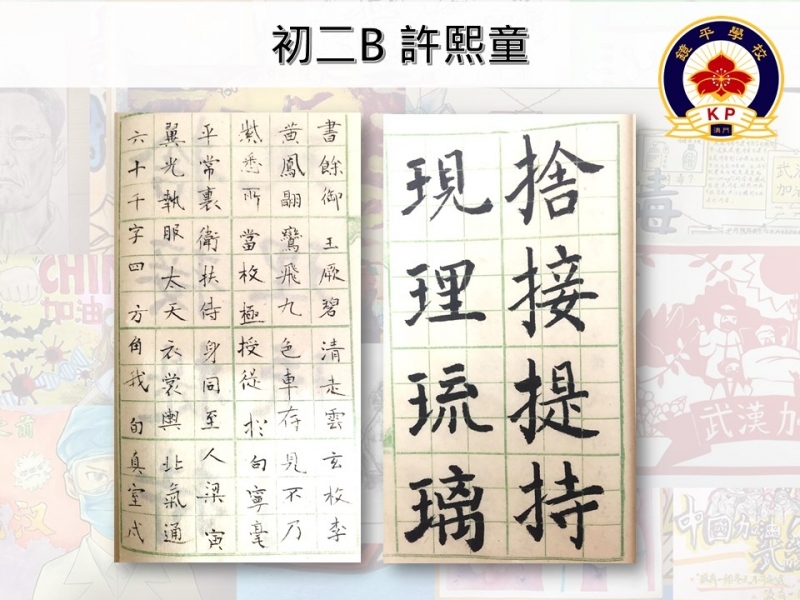 初二B 許熙童
鏡平學校
KP
澳門
書餘御王厥碧清走雲玄枚李
黃鳳翮鸞飛九色車存見不乃
紫悉所當枚極授從於句寧毫
平常裏衛扶侍身同至人梁寅
翼光執服太天衣裳輿北氣通
六十千字四方角我句真室戍
捨接提持
現理琉璃
CHIN
加油
毒
武漢加
中國加油